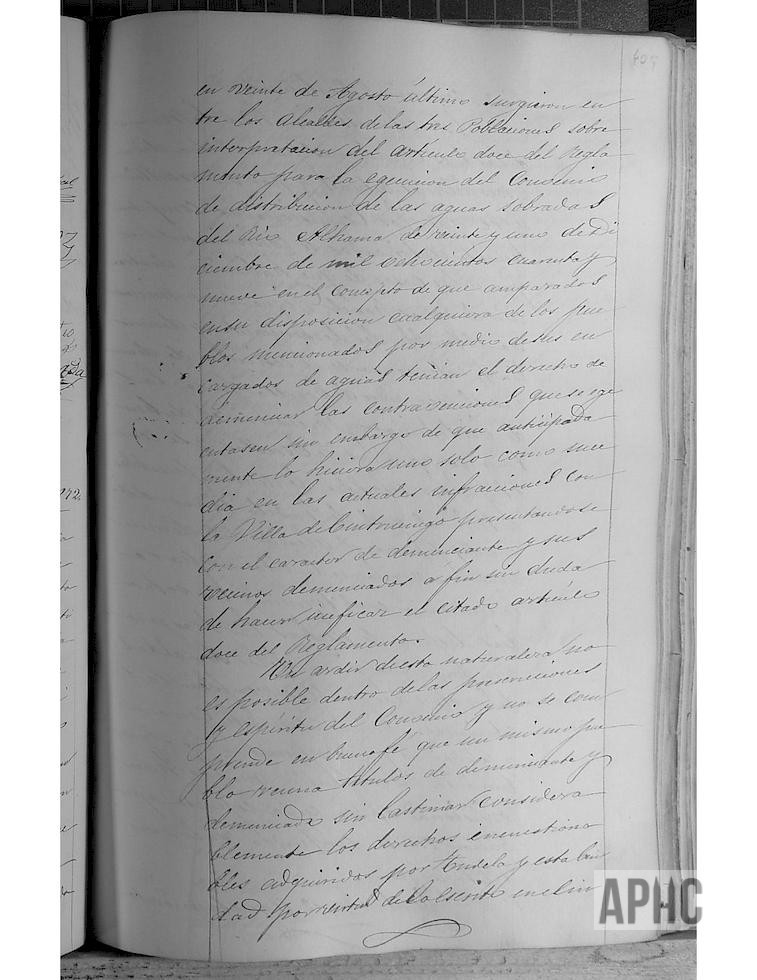 405
en veinte de Agosto último surgieron en
tre los Alcaldes de las tres Poblaciones sobre
interpretacion del artículo doce del Regla
mento para la egecucion del Convenio
de distribucion de las aguas sobradas
del Rio Alhama de veinte y uno de Di
ciembre de mil ochocientos cuarenta y
nueve en el concepto de que amparados
en su disposicion cualquiera de los pue
blos mencionados por medio de sus en
cargados de aguas tenian el derecho de
denunciar las contravenciones que se ege
cutasen sin embargo de que anticipada
mente lo hiciera uno solo como suce
dia en las actuales infracciones con
la Villa de Cintruenigo presentandose
con el caracter de denunciante y sus
vecinos denunciados a fin sin duda
de hacer ineficaz el citado artículo
doce del Reglamento.
Un ardir de esta naturaleza no
es posible dentro de las prescripciones
y espíritu del Convenio y no se com
prende en buena fé que un mismo pue
blo reuna titulos de denunciante y
denunciado sin lastimar considera
blemente los derechos incuestiona
bles adquiridos por Tudela y esta Ciu
dad por virtud de lo escrito en el
APHC